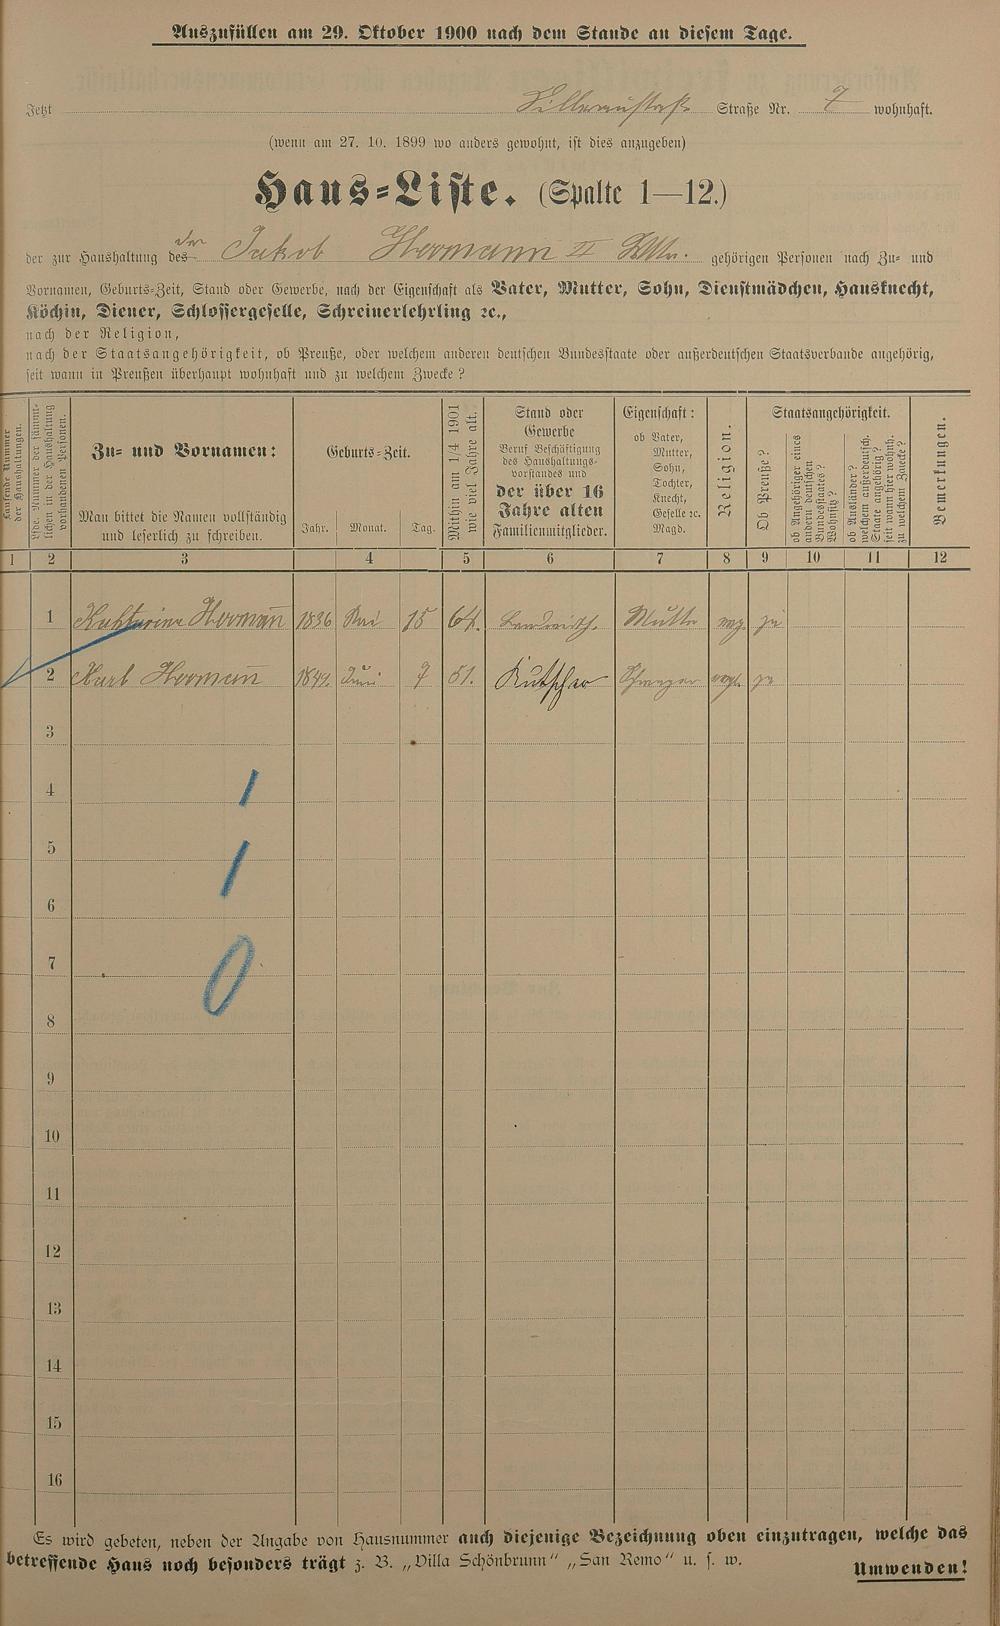 Auszufüllen am 29. Oktober 1900 nach dem Stande an diesem Tage.
Jetzt Straße Nr. 7 wohnhaft.
(wenn am 27. 10. 1899 wo anders gewohnt, ist dies anzugeben)
Haus=Liste. (Spalte 1—12.)
der zur Haushaltung des der Jakob Hermann II Wtw. gehörigen Personen nach Zu- und
Vornamen, Geburts=Zeit, Stand oder Gewerbe, nach der Eigenschaft als Vater, Mutter, Sohn, Dienstmädchen, Hausknecht,
Köchin, Diener, Schlossergeselle, Schreinerlehrling ꝛc.,
nach der Religion,
nach der Staatsangehörigkeit, ob Preuße, oder welchem anderen deutschen Bundesstaate oder außerdeutschen Staatsverbande angehörig,
seit wann in Preußen überhaupt wohnhaft und zu welchem Zwecke?
Laufende Nummer
der Haushaltungen.
Lfde. Nummer der sämmt-
lichen in der Haushaltung
vorhandenen Personen.
Zu= und Vornamen:
Man bittet die Namen vollständig
und leserlich zu schreiben.
Geburts=Zeit.
Jahr. Monat. Tag.
Mithin am 1/4 1901
wie viel Jahre alt.
Stand oder
Gewerbe
Beruf Beschäftigung
des Haushaltungs-
vorstandes und
der über 16
Jahre alten
Familienmitglieder.
Eigenschaft:
ob Vater,
Mutter,
Sohn,
Tochter,
Knecht,
Geselle ꝛc.
Magd.
Religion.
Staatsangehörigkeit.
Ob Preuße?
ob Angehöriger eines
andern deutschen
Bundesstaates?
Wohnsitz?
ob Ausländer?
welchem außerdeutsch.
Staate angehörig?
seit wann hier wohnh.
zu welchem Zwecke?
Bemerkungen.
1 2 3 4 5 6 7 8 9 10 11 12
1 Kahtarina Herman̄ 1836 Mai 15 64. Landwirth. Mutter evg. ja
2 Karl Herman̄ 1849. Juni 7 51. Kutscher Schwager evgl. ja
3
4
5
6
7
8
9
10
11
12
13
14
15
16
Es wird gebeten, neben der Angabe von Hausnummer auch diejenige Bezeichnung oben einzutragen, welche das
betreffende Haus noch besonders trägt z. B. „Villa Schönbrunn“ „San Remo“ u. s. w.
Umwenden!